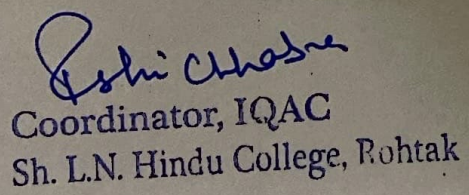 Rshi Chhabra
Coordinator, IQAC
Sh. L.N. Hindu College, Rohtak